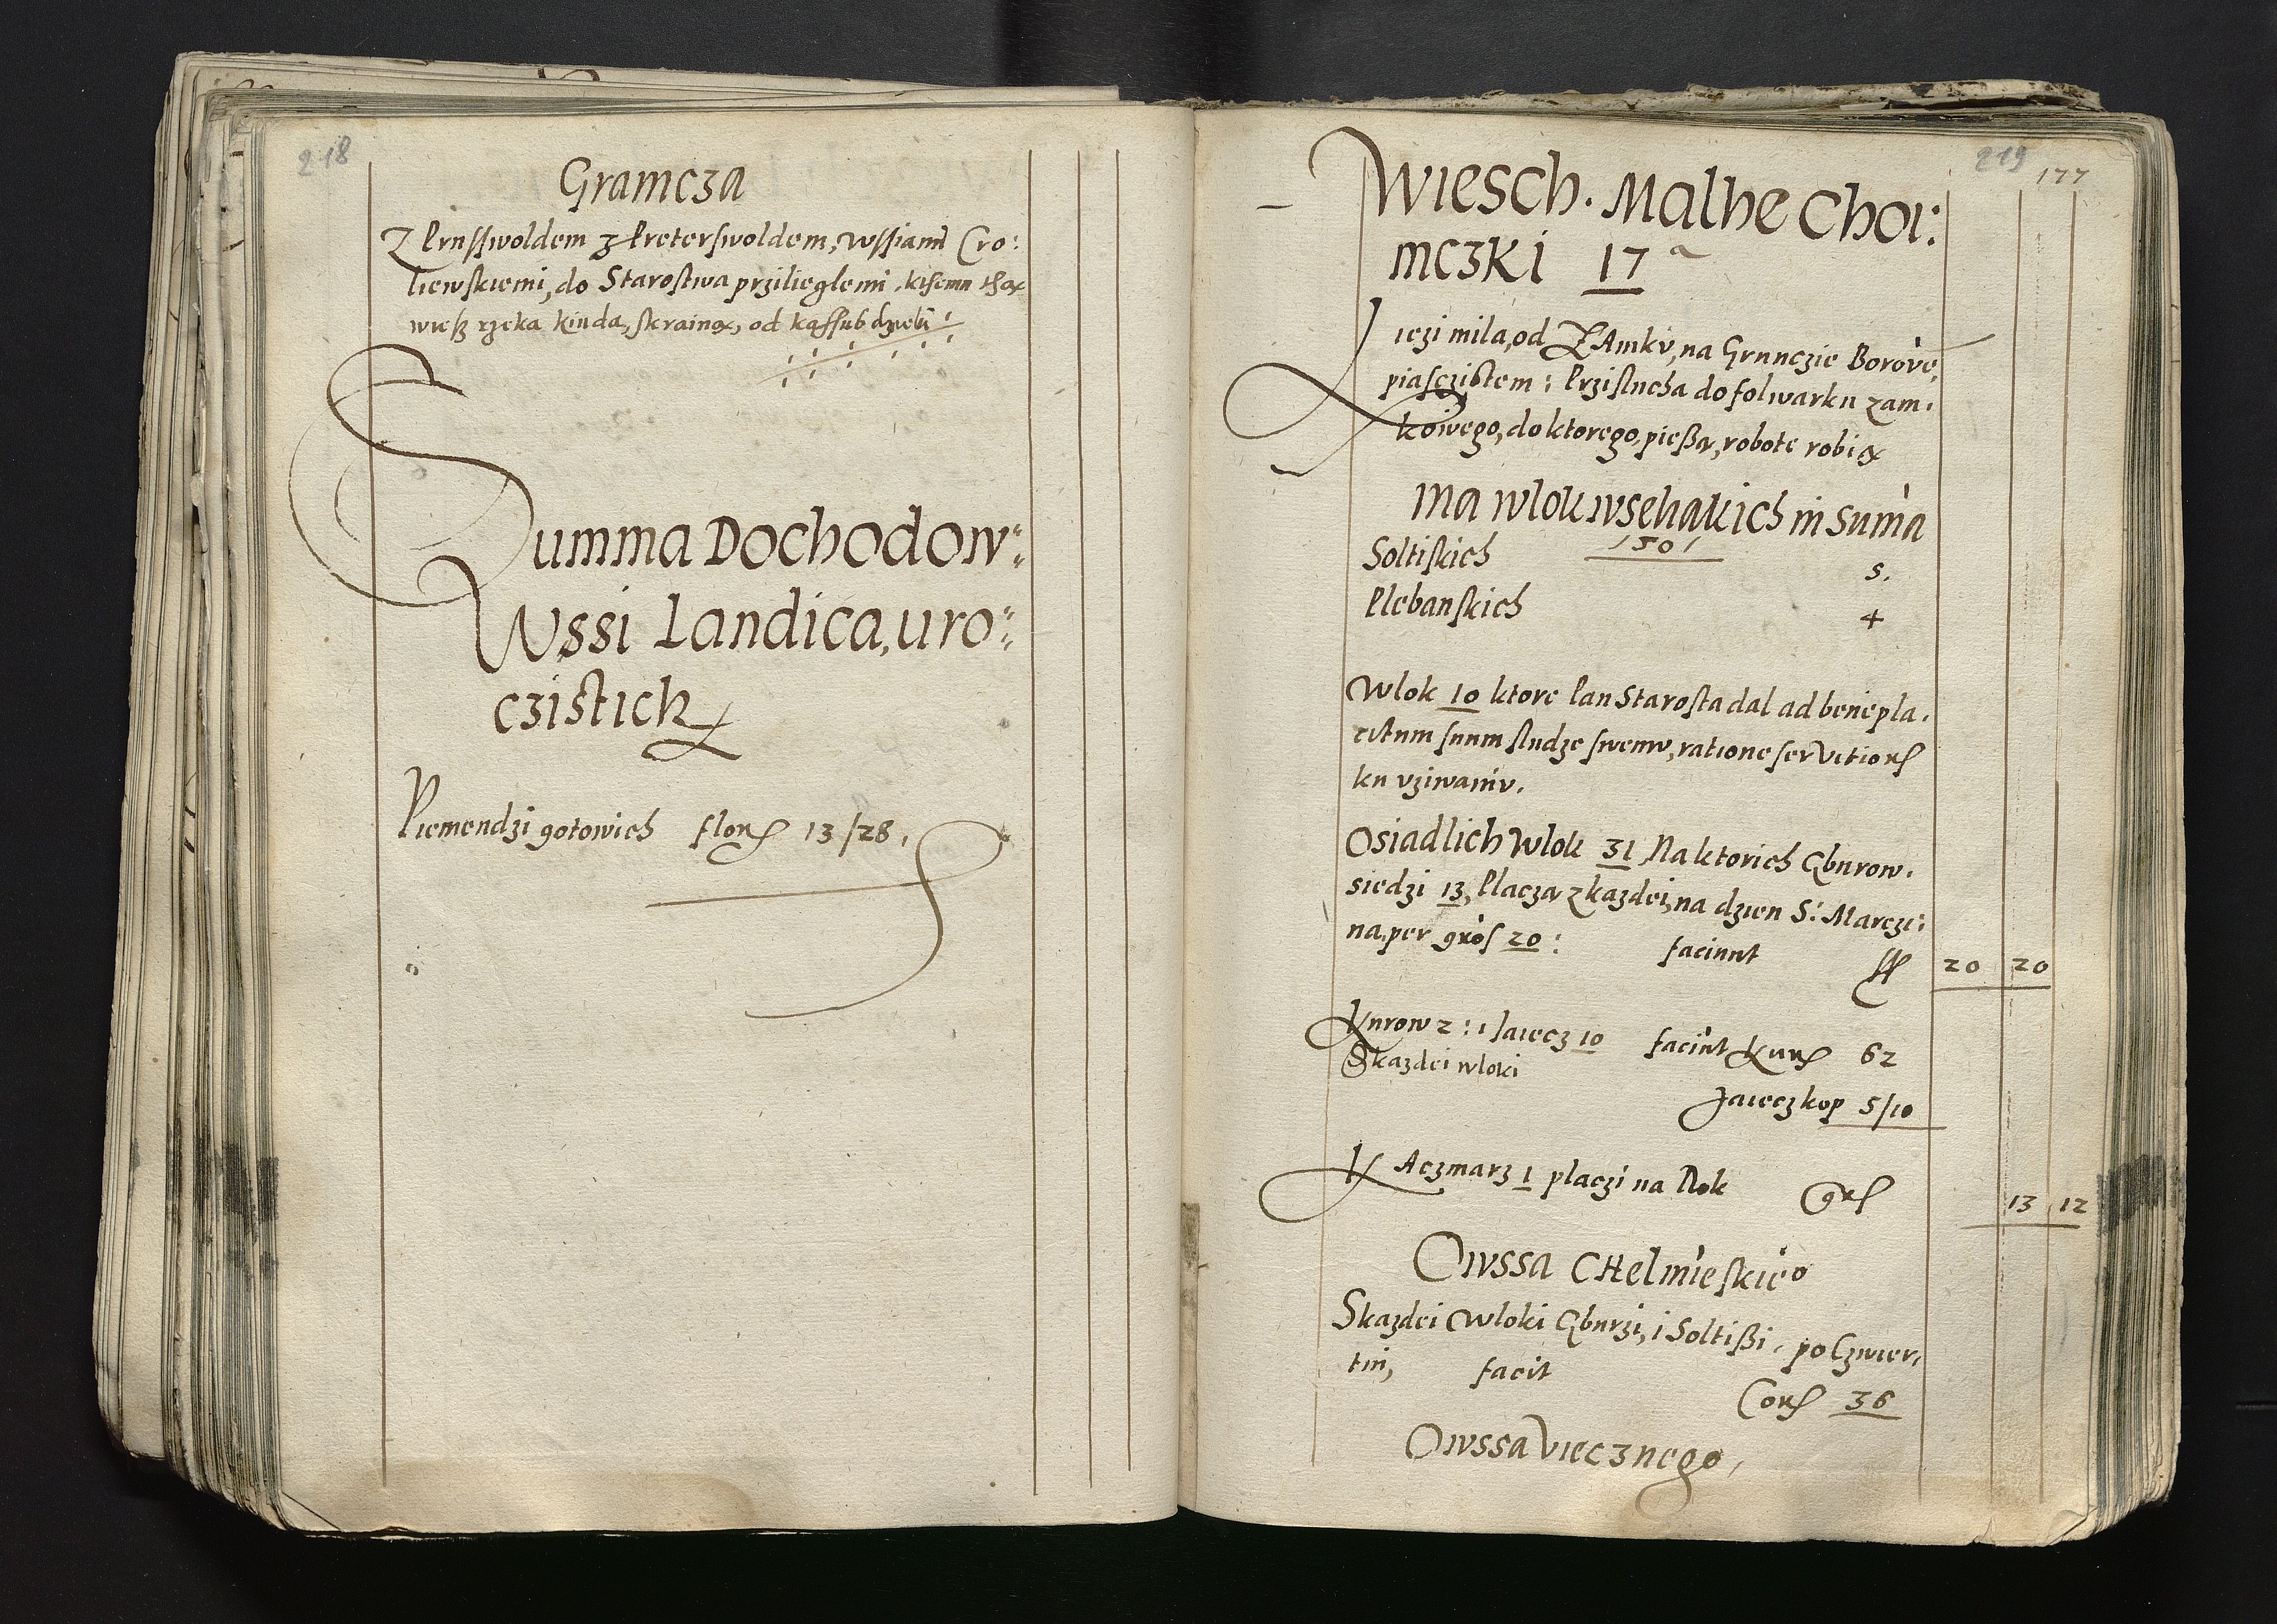 218
Gramcza
Z Prusswoldem z Preterswoldem, Wssiami Cro:
liewskiemi, do Starostwa przilieglemi, kthemu thax
wiesz rzeka Kiuda, skraina, od kassub dzieli
Summa Dochodow
Wssi Landica, uro
czistich
Piemendzi gotowich flor 13/28,
219
177
Wiesch. Malhe Choi:
mczki 17a
iczi mila, od ZAmku, na Grunczie Borove,
piasczistem: Przislucha do folwarku zam,
kowego, do ktorego, piesza, robote robia
Ma wlok wseliakich in suma
1501
Soltiskich 5.
Plebanskich 4
Wlok 10 ktore Pan Starosta dal ad benepla,
citum suum sludze swemu, ratione servitior
ku uziwaniu.
Osiadlich wlok 31 Na ktorich Gburow,
siedzi 13, Placza z kazdei, na dzien S: Marczi:
na, per gros 20: faciunt fl 20 20
Kurow 2: i Jaiecz 10 faciunt Kur 62
Skazdei wloki
Jaiecz kop 5/10
KAczmarz 1 placzi na Rok Gr 13 12
Owssa CHelmieskieo
Skazdei Wloki Gburzi, i Soltiszi, po Czwier,
tni, facit
Cor 36
Owssa Viecznego,